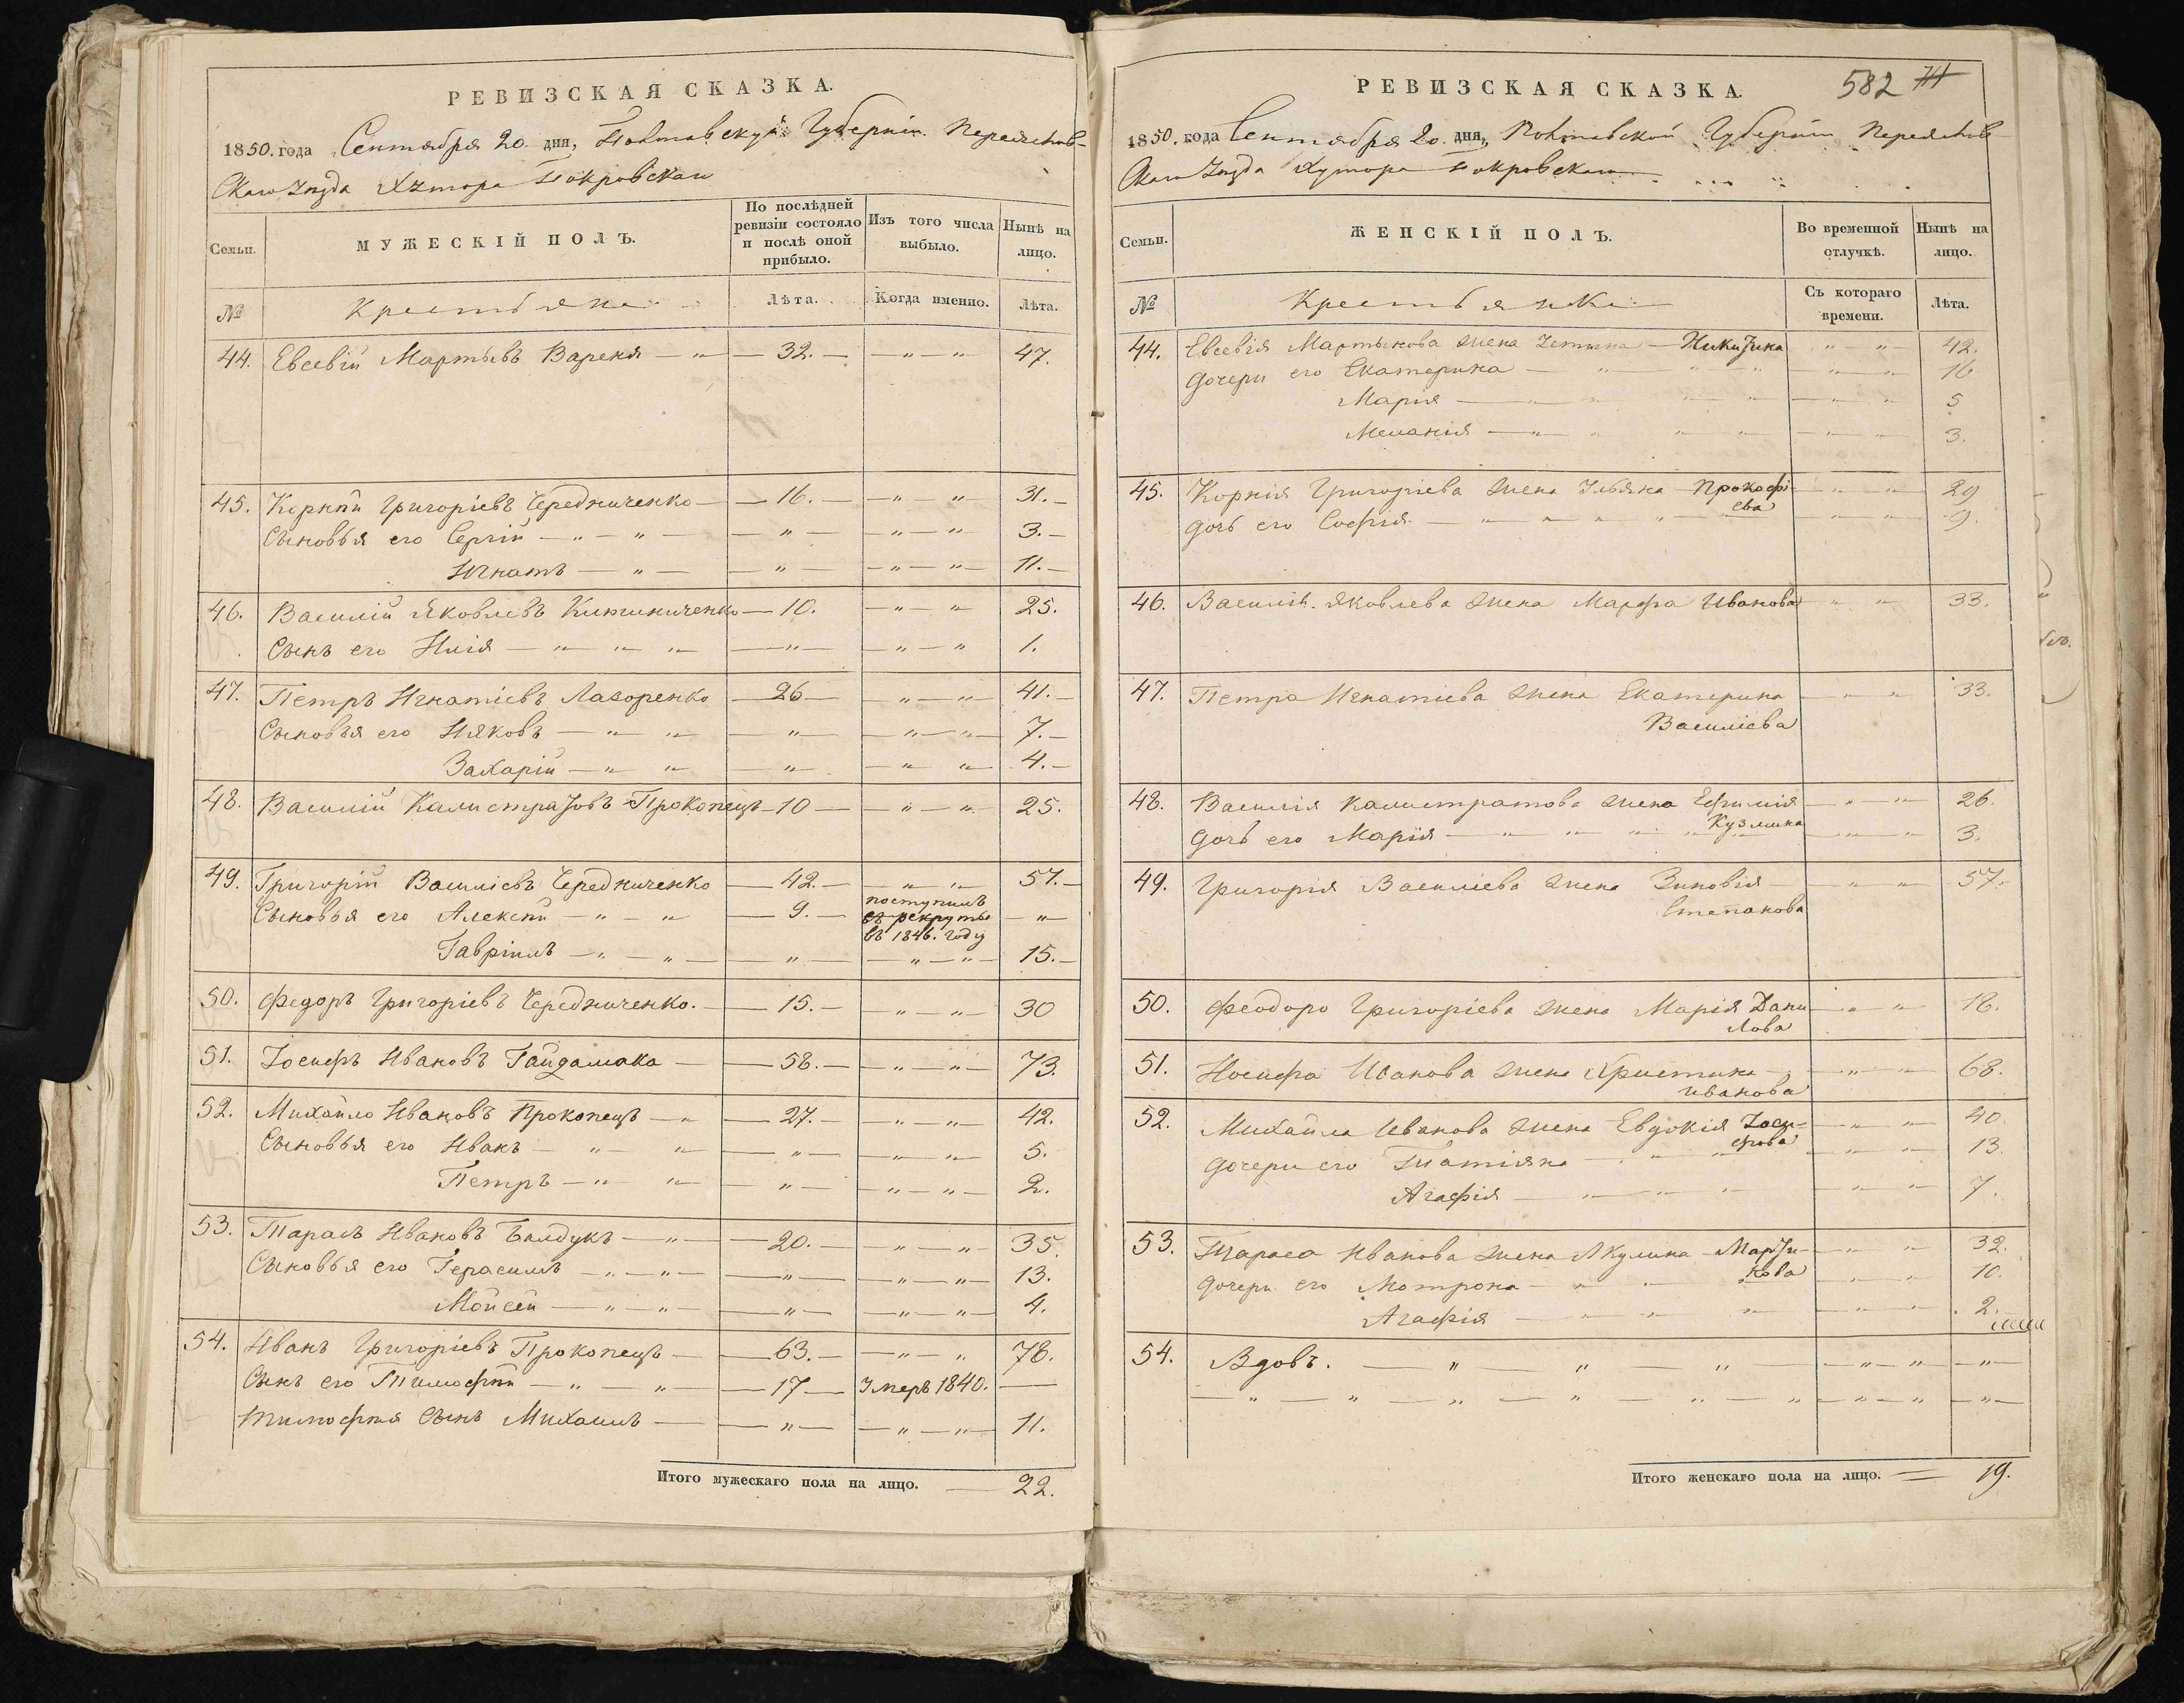 РЕВИЗСКАЯ СКАЗКА.
1850. года Сентября 20. дня, Полтавской Губернiи Переяслав-
скаго Уѣзда Хутора Покровскаго
Семьи.
МУЖЕСКIЙ ПОЛЪ.
По послѣдней ревизiи состояло и послѣ оной прибыло.
Изъ того числа выбыло.
Нынѣ на лицо.
№ Крестьяне Лѣта. Когда именно. Лѣта.
44. Евсевiй Мартыновъ Вареня — „ — 32. — — „ „ 47.
45. Корнѣй Григорiевъ Чередниченко — 16. — — „ „ 31. —
Сыновья его Сергiй — „ — „ — — „ — — „ — „ 3. —
Игнатъ — „ — — „ — — „ — „ 11. —
46. Василiй Яковлевъ — 10. — „ „ 25.
Сынъ его Илiя — „ „ „ — „ — — „ — „ 1.
47. Петръ Игнатiевъ Лазоренко — 26 — „ „ 41. —
Сыновья его Iяковъ — „ „ — „ — „ — „ 7. —
Захарiй — „ „ — „ — „ „ 4. —
48. Василiй Калистратовъ Прокопецъ — 10 — „ „ 25.
49. Григорiй Василiевъ Чередниченко — 42. — — „ „ 57. —
Сыновья его Алексѣй — „ — „ — 9. — поступилъ въ рекруты въ 1846. году — „
Гаврiилъ — „ — „ — — „ — — „ — „ 15. —
50. Федоръ Григорiевъ Чередниченко. — 15. — — „ — „ 30
51. Iосифъ Ивановъ Гайдамака — 58. — — „ — „ 73.
52. Михайло Ивановъ Прокопецъ — „ — 27. — — „ — „ 42.
Сыновья его Иванъ — „ — „ — „ — — „ „ 5.
Петръ — „ „ — „ — — „ — „ 2.
53. Тарасъ Ивановъ Балдукъ — „ — — 20. — — „ — „ 35.
Сыновья его Герасимъ — „ — „ — — „ — — „ — „ 13.
Мойсей — „ — „ — — „ — — „ — „ 4.
54. Иванъ Григорiевъ Прокопецъ — 63. — — „ — „ 78.
Сынъ его Тимофѣй — „ — „ — 17 — Умеръ 1840. —
Тимофѣя Сынъ Михаилъ — — „ — — „ — „ 11.
Итого мужескаго пола на лицо. — 22.
РЕВИЗСКАЯ СКАЗКА. 582
1850. года Сентября 20. дня, Полтавской Губернiи Переяслав-
скаго Уѣзда Хутора Покровскаго
Семьи.
ЖЕНСКIЙ ПОЛЪ.
Во временной отлучкѣ.
Нынѣ на лицо.
№ Крестьянки Съ котораго времени. Лѣта.
44. Евсевiя Мартынова жена Устина — Никитина „ — „ 42.
Дочери его Екатерина — „ — „ — „ „ — „ 16
Марiя — „ „ „ „ — „ „ 5
Меланiя — „ „ „ „ — „ „ 3.
45. Корнiя Григорiева жена Ульяна — Прокофi- — „ — „ 29
ева
Дочь его Софiя — „ „ „ „ — „ „ 9
46. Василiя Яковлева жена Марфа Иванова „ „ 33.
47. Петра Игнатiева жена Екатерина — „ „ 33.
Василiева
48. Василiя Калистратова жена Ефимiя — „ — „ 26.
Кузмина
Дочь его Марiя — „ „ „ — „ — „ 3.
49. Григорiя Василiева жена Зиновiя — „ — „ 57.
Степанова
50. Феодора Григорiева жена Марiя Дани- — „ „ 18.
лова
51. Иосифа Иванова жена Христина — „ — „ 68.
Иванова
52. Михайла Иванова жена Евдокiя Iоси- — „ — „ 40
фова
Дочери его Татiяна — „ „ — „ — „ 13.
Агафiя — „ — „ „ — „ — „ 7.
53. Тараса Иванова жена Акулина — Марти- — „ „ 32.
нова
Дочери его Мотрона — „ „ — „ „ 10.
Агафiя — „ „ „ — „ — „ 2.
54. Вдовъ. — „ — „ — „ — — „ — „ — „ —
— „ — „ — „ — „ — „ — „ — „ — „ — „ —
Итого женскаго пола на лицо. — 19.